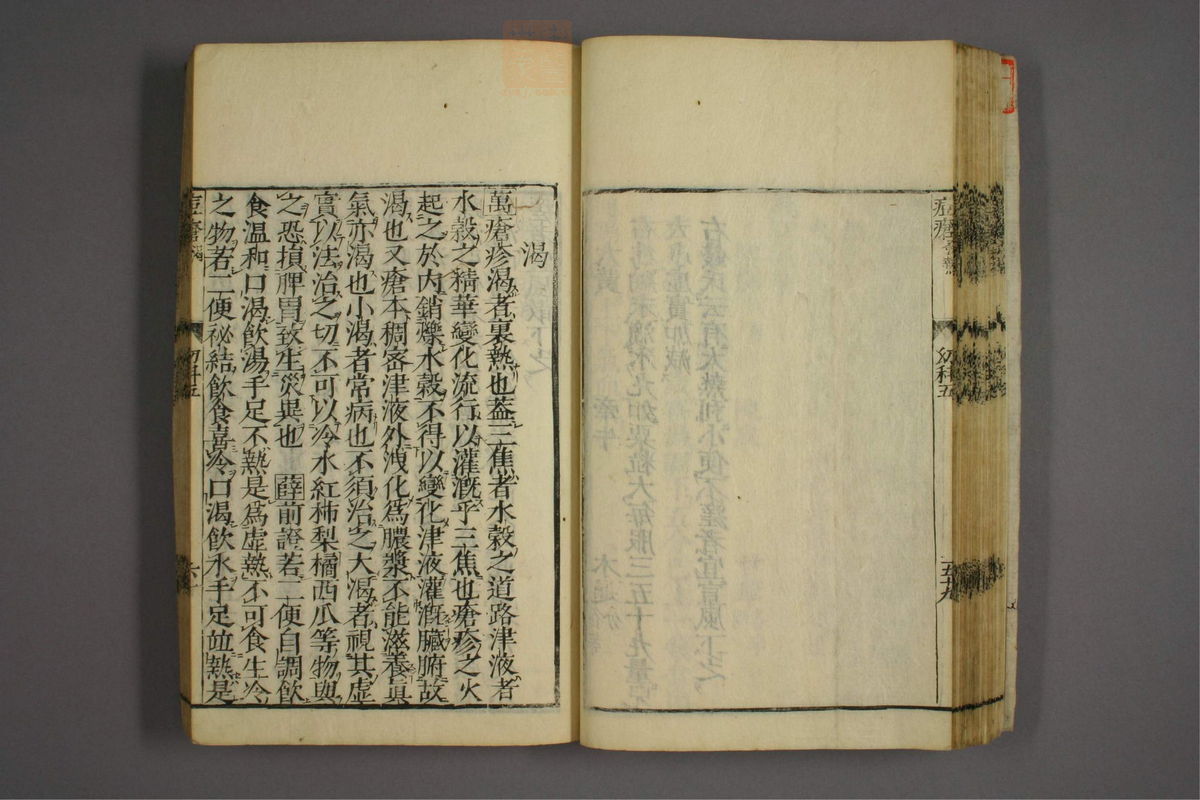 痘瘡
幼科五
五十九
渴
萬瘡疹渴者裏熱也蓋三焦者水穀之道路津液者
水穀之精華變化流行以灌漑乎三焦也瘡疹之火
起之於內銷爍水穀不得以變化津液灌漑臟腑故
渴也又瘡本稠密津液外洩化爲膿漿不能滋養眞
氣亦渴也小渴者常病也不須治之大渴者視其虛
實以法治之切不可以冷水紅柿梨橘西瓜等物與
之恐損脾胃致生災異也薛前證若二便自調飲
食温和口渴飲湯手足不熱是爲虛熱不可食生冷
之物若二便祕結飲食喜冷口渴飲水手足並熱是
痘瘡 渴
幼科五
六十